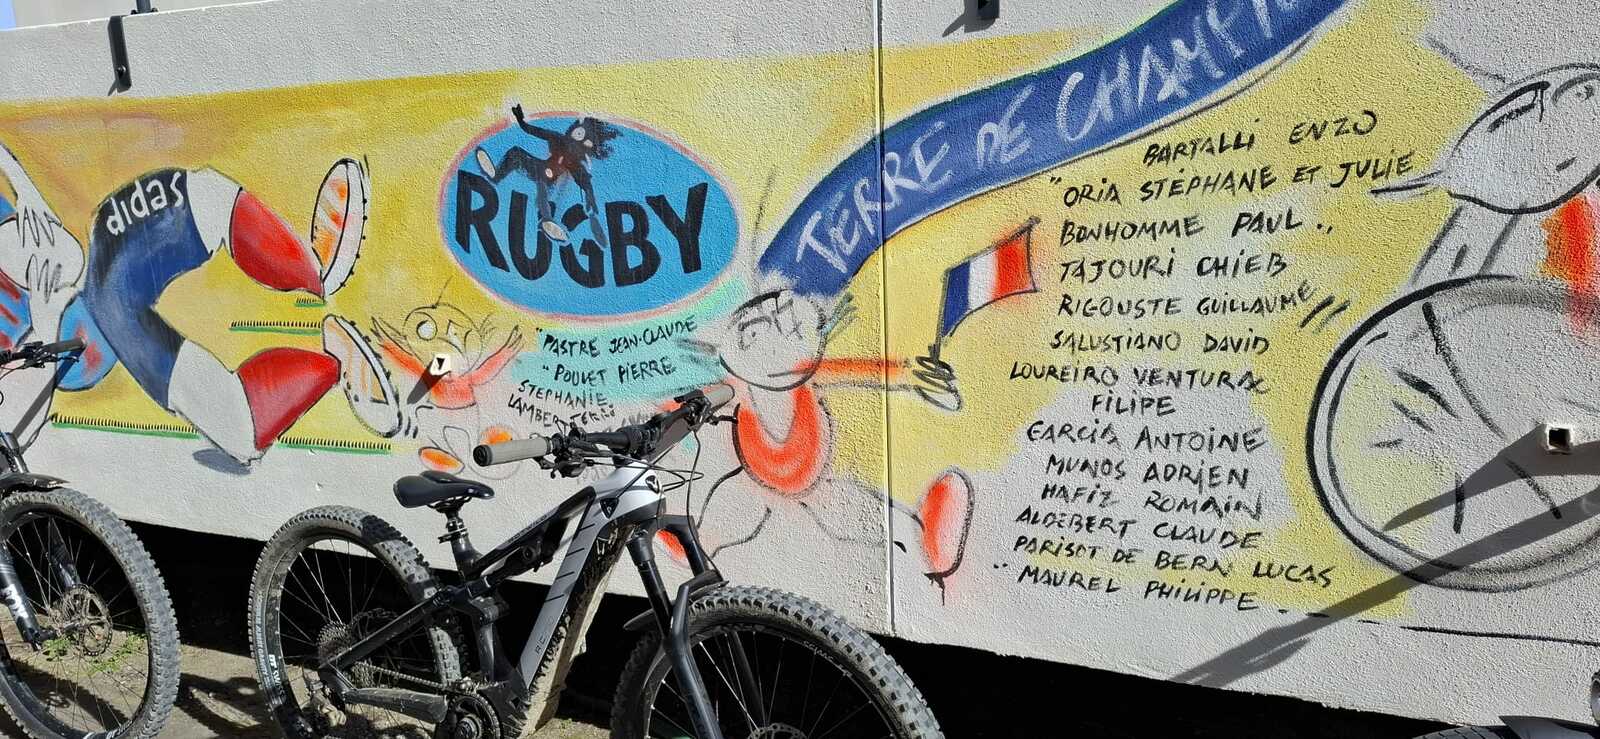 didas
RUGBY
"PASTRE JEAN-CLAUDE
"POULET PIERRE
STEPHANIE
TERRE DE CHAMPI
BARTALLI ENZO
"ORIA STÉPHANE ET JULIE
BONHOMME PAUL..
TAJOURI CHIEB
RIGOUSTE GUILLAUME
SALUSTIANO DAVID
LOUREIRO VENTURA
FILIPE
GARCIA ANTOINE
MUNOS ADRIEN
HAFIZ ROMAIN
ALDEBERT CLAUDE
PARISOT DE BERN LUCAS
" MAUREL PHILIPPE